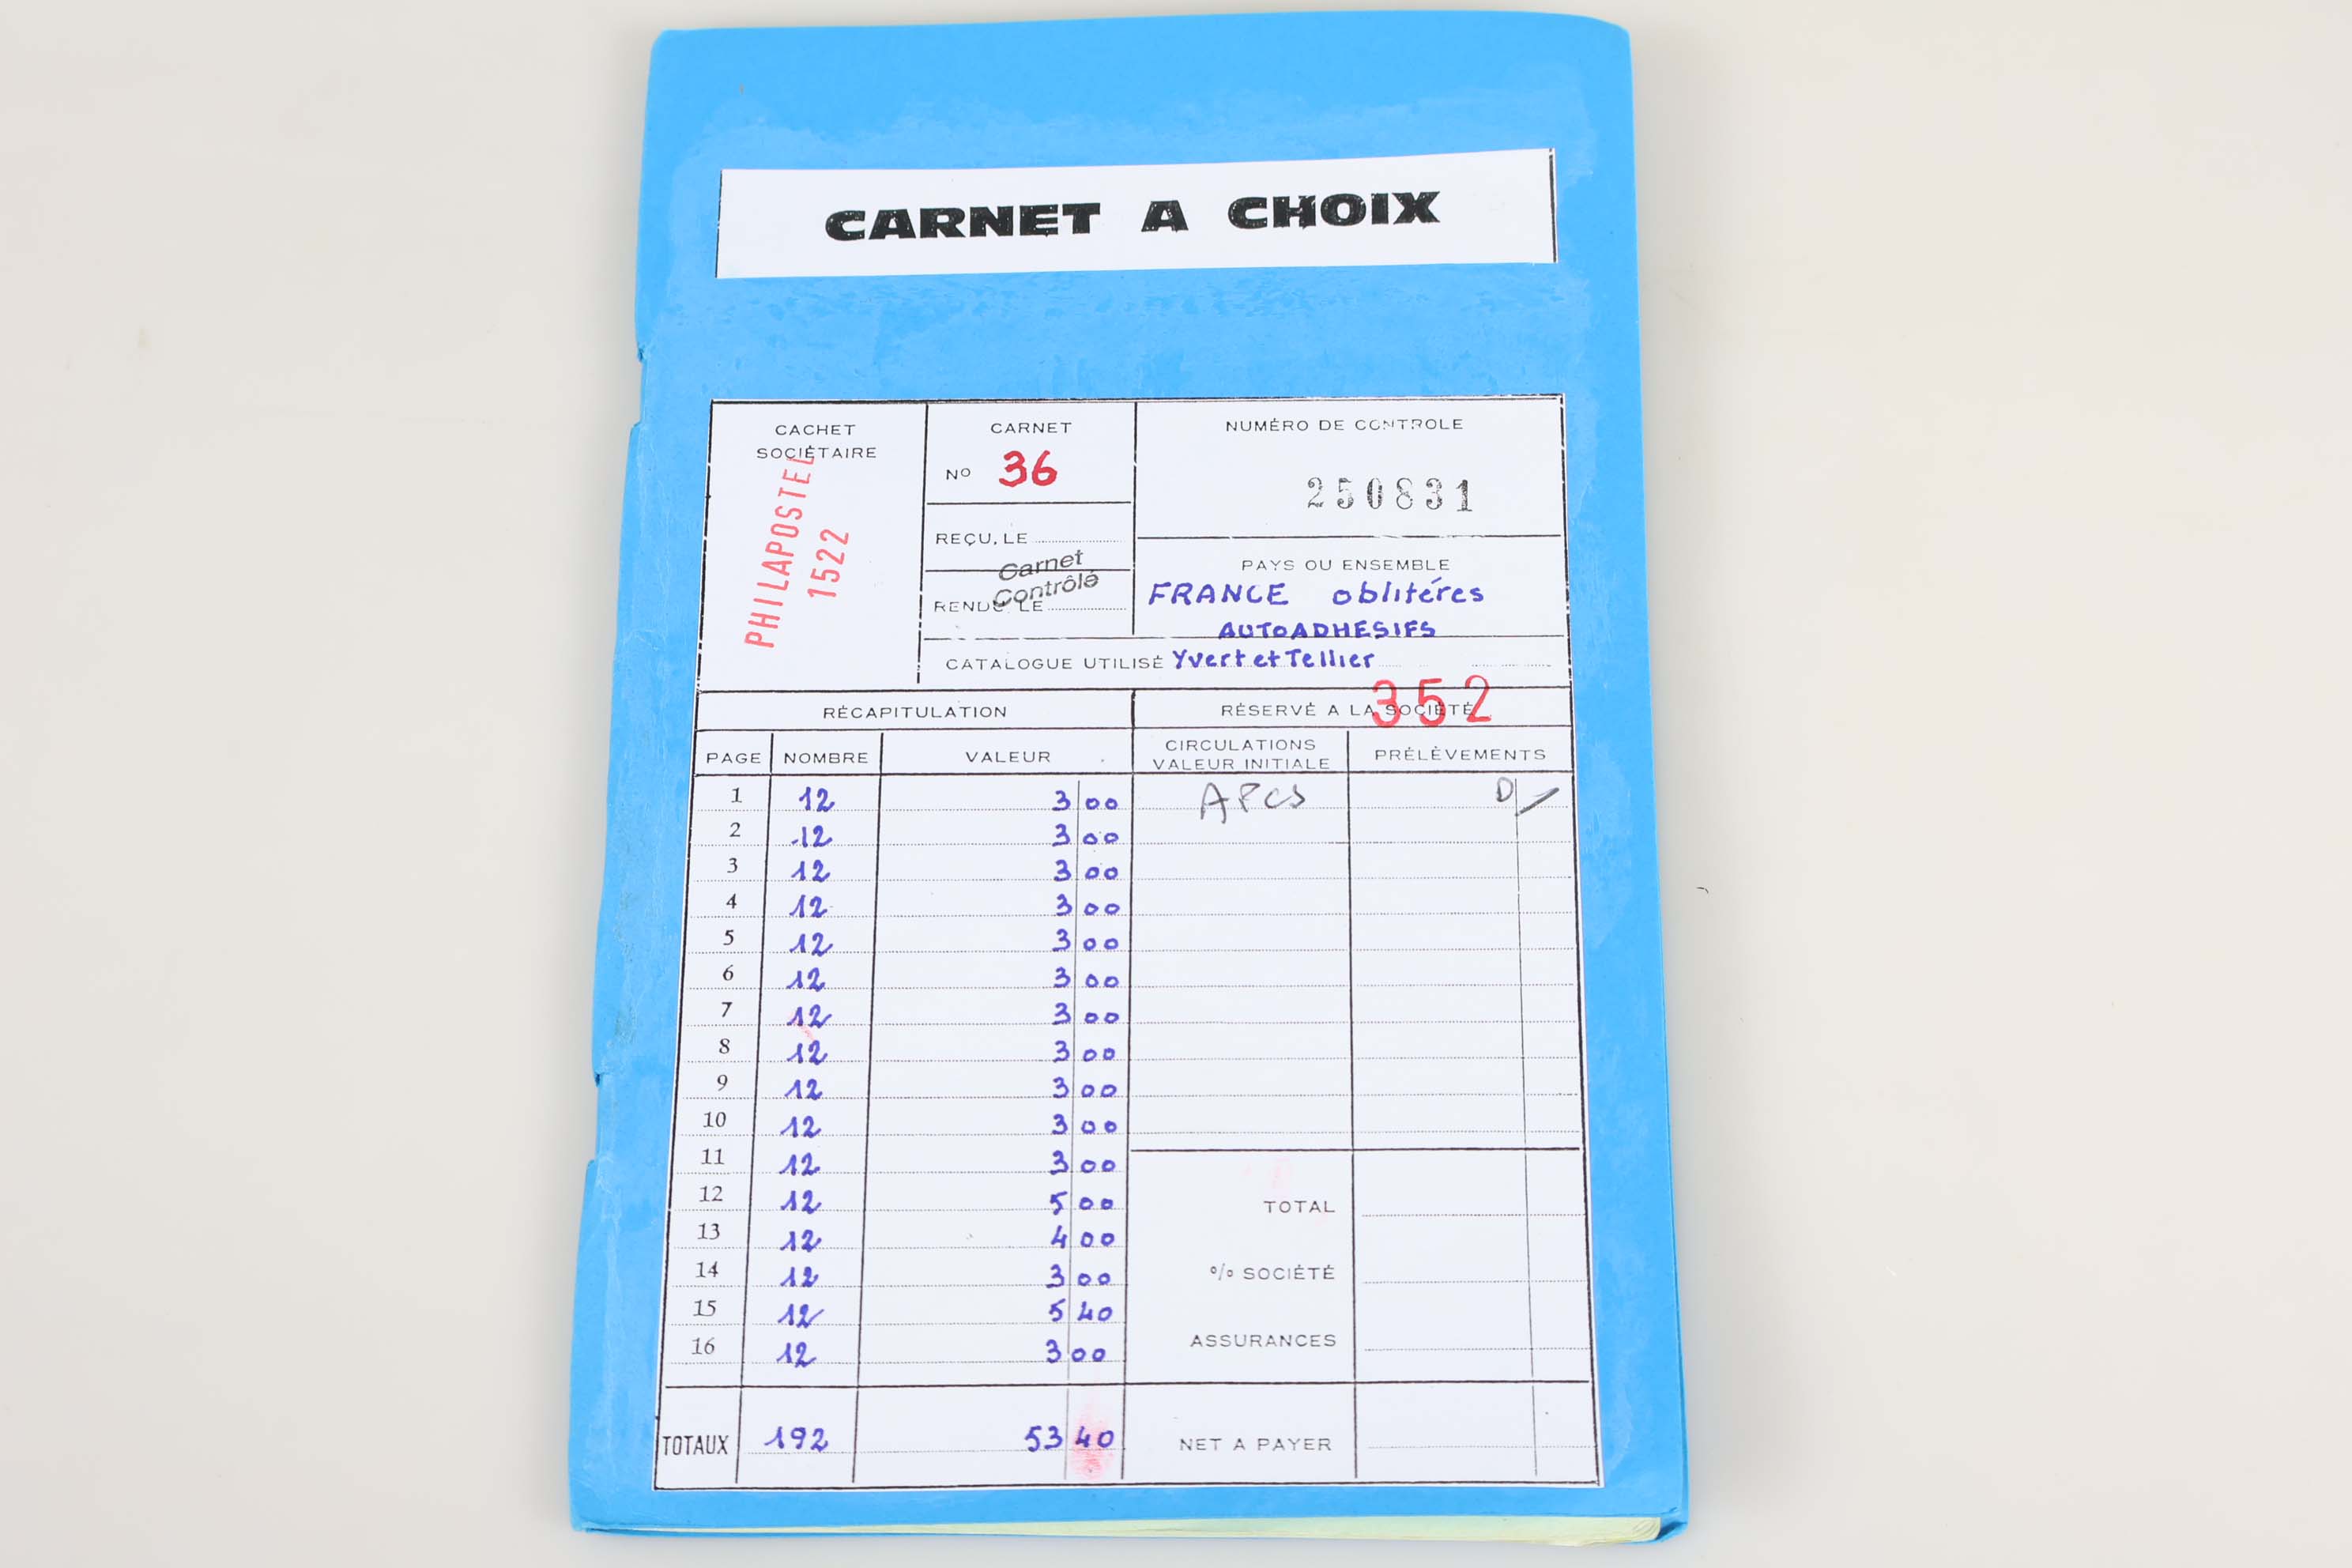 CARNET A CHOIX
CACHET
SOCIÉTAIRE
PHILAPOSTEL
1522
CARNET
Nº 36
REÇU, LE
RENDU LE
Carnet
Contrôlé
NUMÉRO DE CONTROLE
250831
PAYS OU ENSEMBLE
FRANCE oblitérés
AUTOADHESIFS
CATALOGUE UTILISÉ Yvert et Tellier
352
RÉCAPITULATION
RÉSERVÉ A LA SOCIÉTÉ
PAGE NOMBRE VALEUR CIRCULATIONS VALEUR INITIALE PRÉLÈVEMENTS
1 12 3 00
2 12 3 00
3 12 3 00
4 12 3 00
5 12 3 00
6 12 3 00
7 12 3 00
8 12 3 00
9 12 3 00
10 12 3 00
11 12 3 00
12 12 5 00
13 12 4 00
14 12 3 00
15 12 5 40
16 12 3 00
TOTAL
% SOCIÉTÉ
ASSURANCES
TOTAUX 192 53 40 NET A PAYER